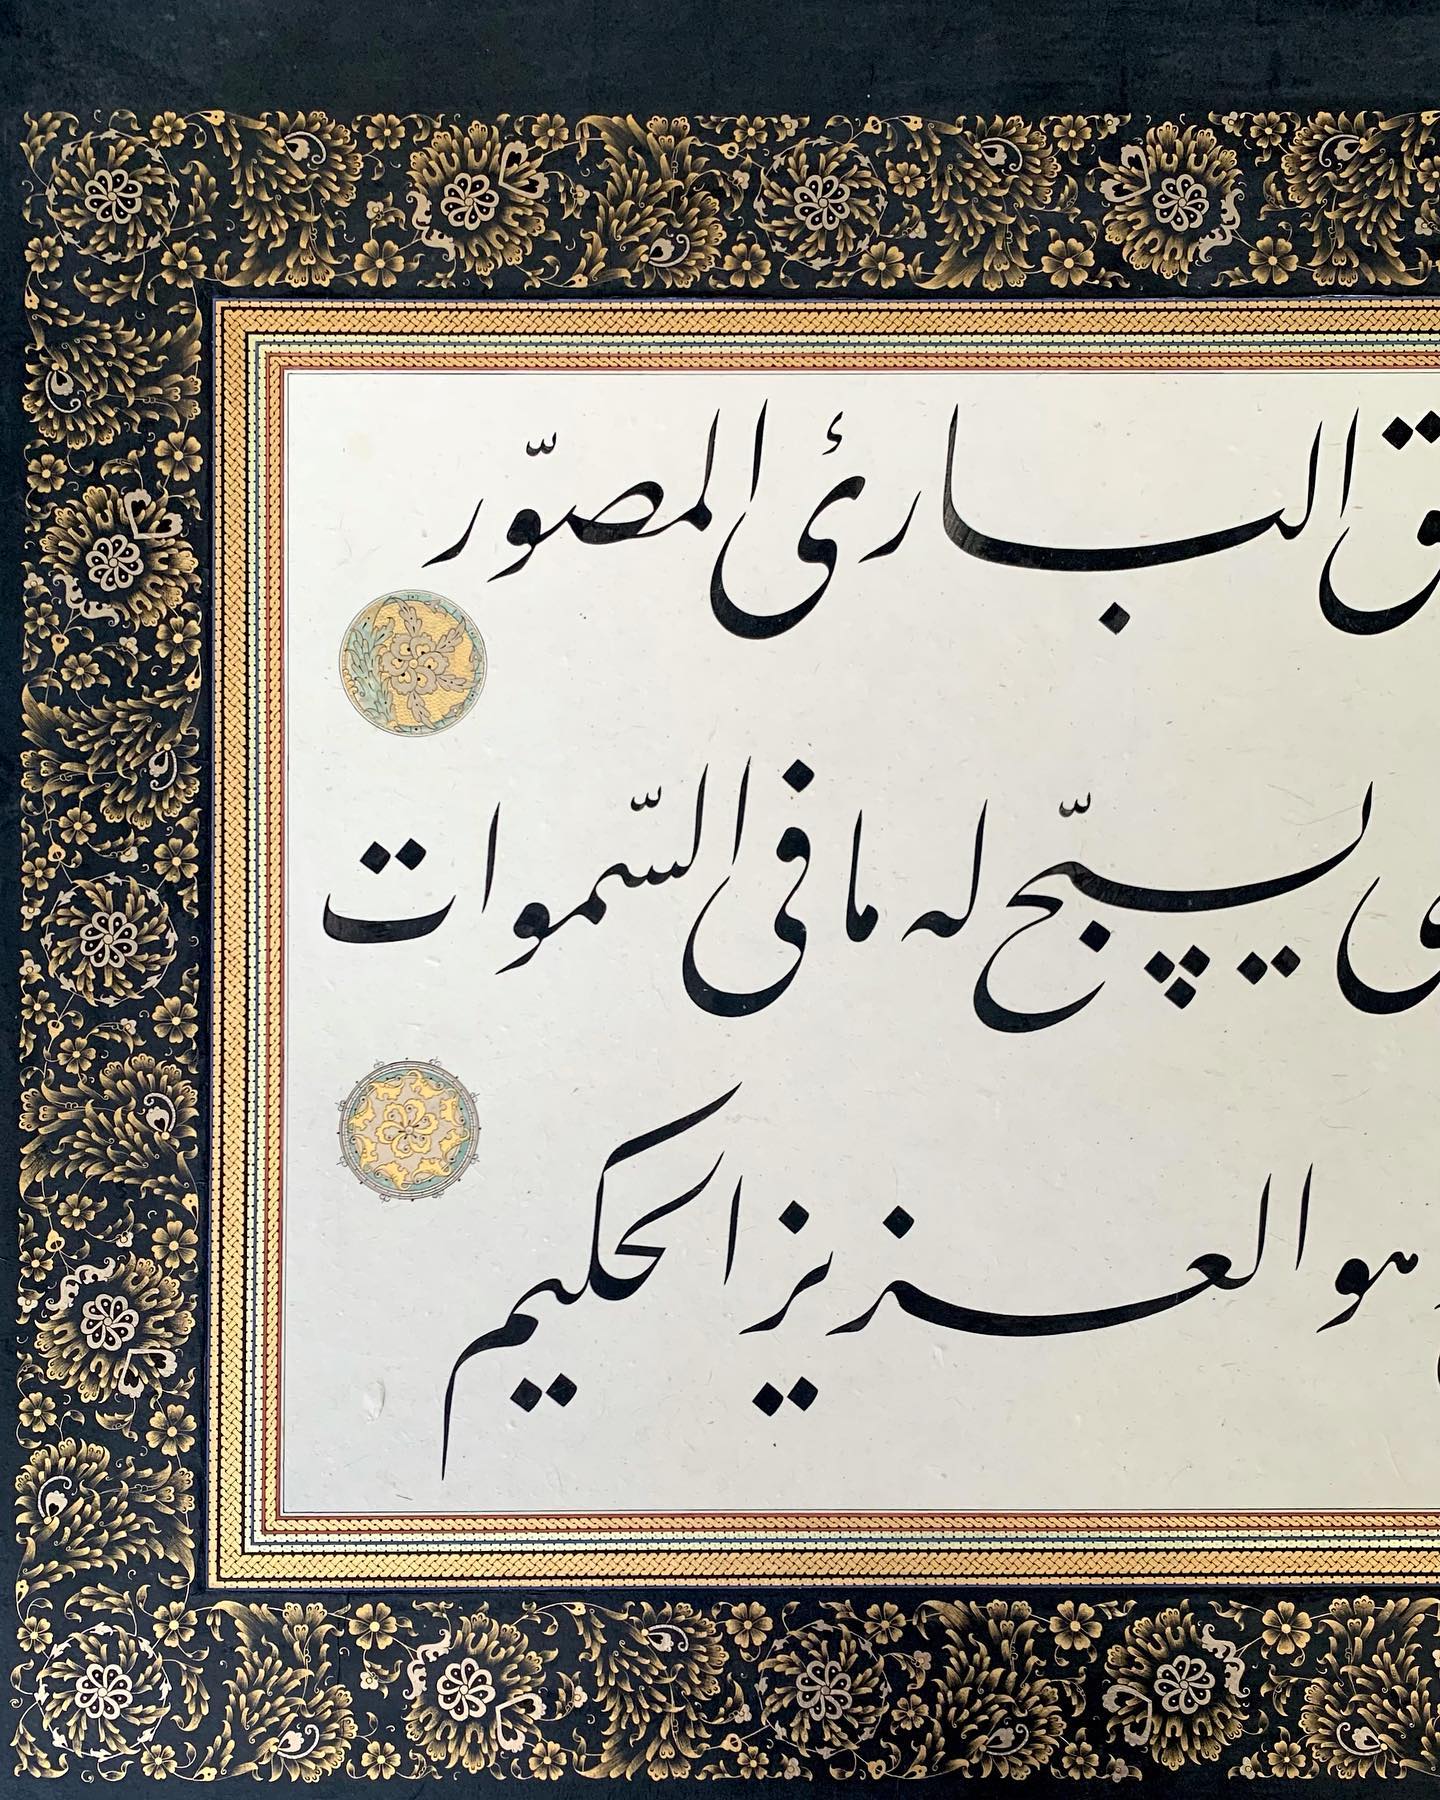 ق البارئ المصوّر
ى يسبّح له ما فى السّموات
هو العزيز الحكيم